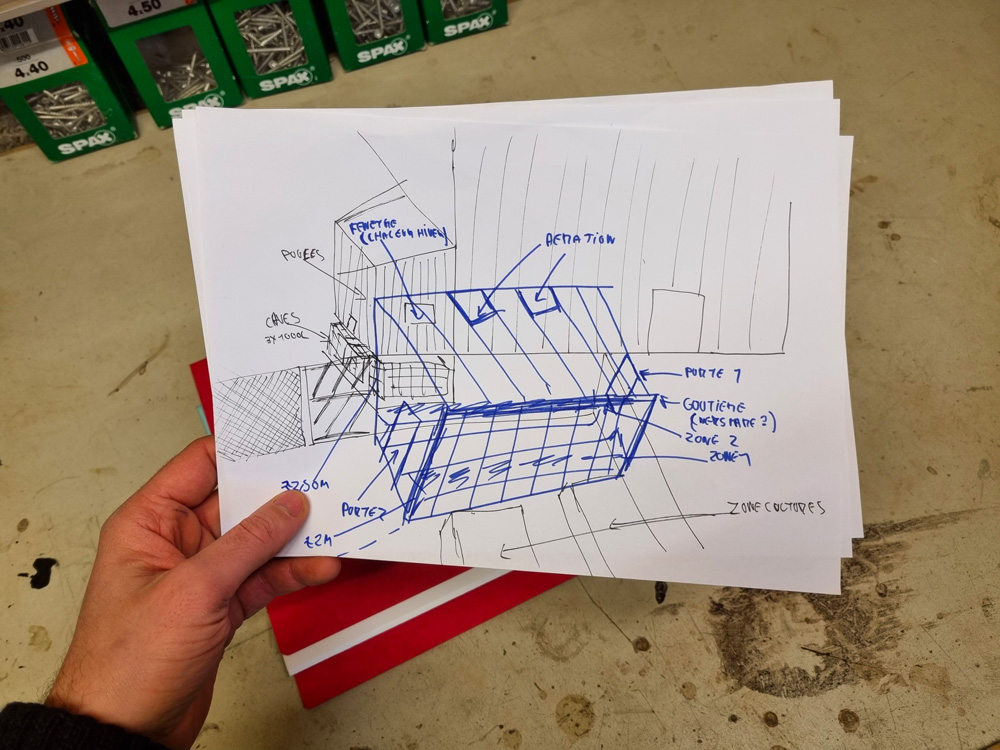 .40
500
4.40
SPAX
4.50
SPAX
SPAX
SPAX
SPAX
FENETRE
(CHALEUR HIVER)
AERATION
POULES
CUVES
3X1000L
PORTE 1
GOUTIERE
ZONE 2
ZONE 1
±2,50M
PORTE 2
±2M
ZONE CULTURES